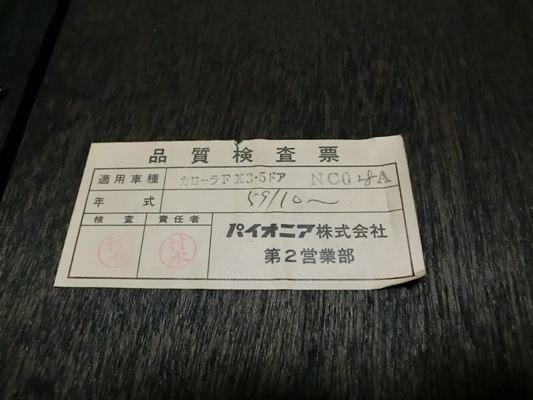 品質検査票
適用車種 カローラFX3・5ドア NCO28A
年式 59/10〜
検査 責任者
パイオニア株式会社
第2営業部